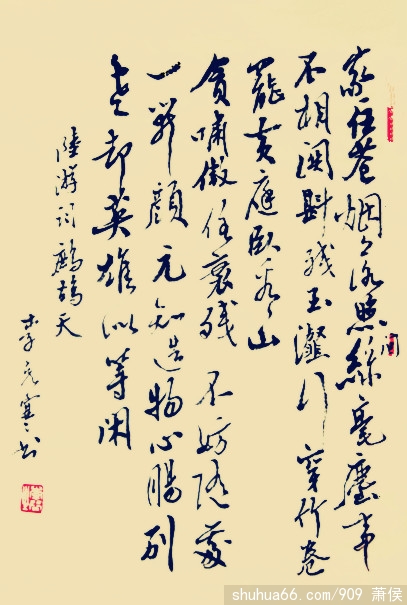 家住苍烟落照间絲毫塵事
不相関斟残玉瀣行穿竹卷
罷黄庭卧看山
貪嘯傲任衰残不妨随處
一開顔元知造物心腸别
老却英雄似等闲
陸游詞鷓鴣天
李寒书
shuhua66.com/909 萧侯